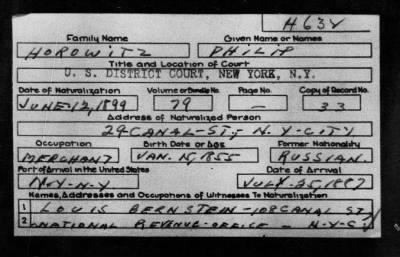 H634
Family Name Given Name or Names
HOROWITZ PHILIP
Title and Location of Court
U. S. DISTRICT COURT, NEW YORK, N.Y.
Date of Naturalization Volume or Bundle No. Page No. Copy of Record No.
JUNE-12,1899 79 — 33
Address of Naturalized Person
29 CANAL-ST, N.Y-CITY
Occupation Birth Date or Age Former Nationality
MERCHANT JAN. 15, 1855 RUSSIAN.
Port of Arrival in the United States Date of Arrival
N.Y-N.Y JULY-25,1887
Names, Addresses and Occupations of Witnesses To Naturalization
1 LOUIS BERNSTEIN-108 CANAL ST
2 NATIONAL REVENUE-OFFICE - N-Y-C